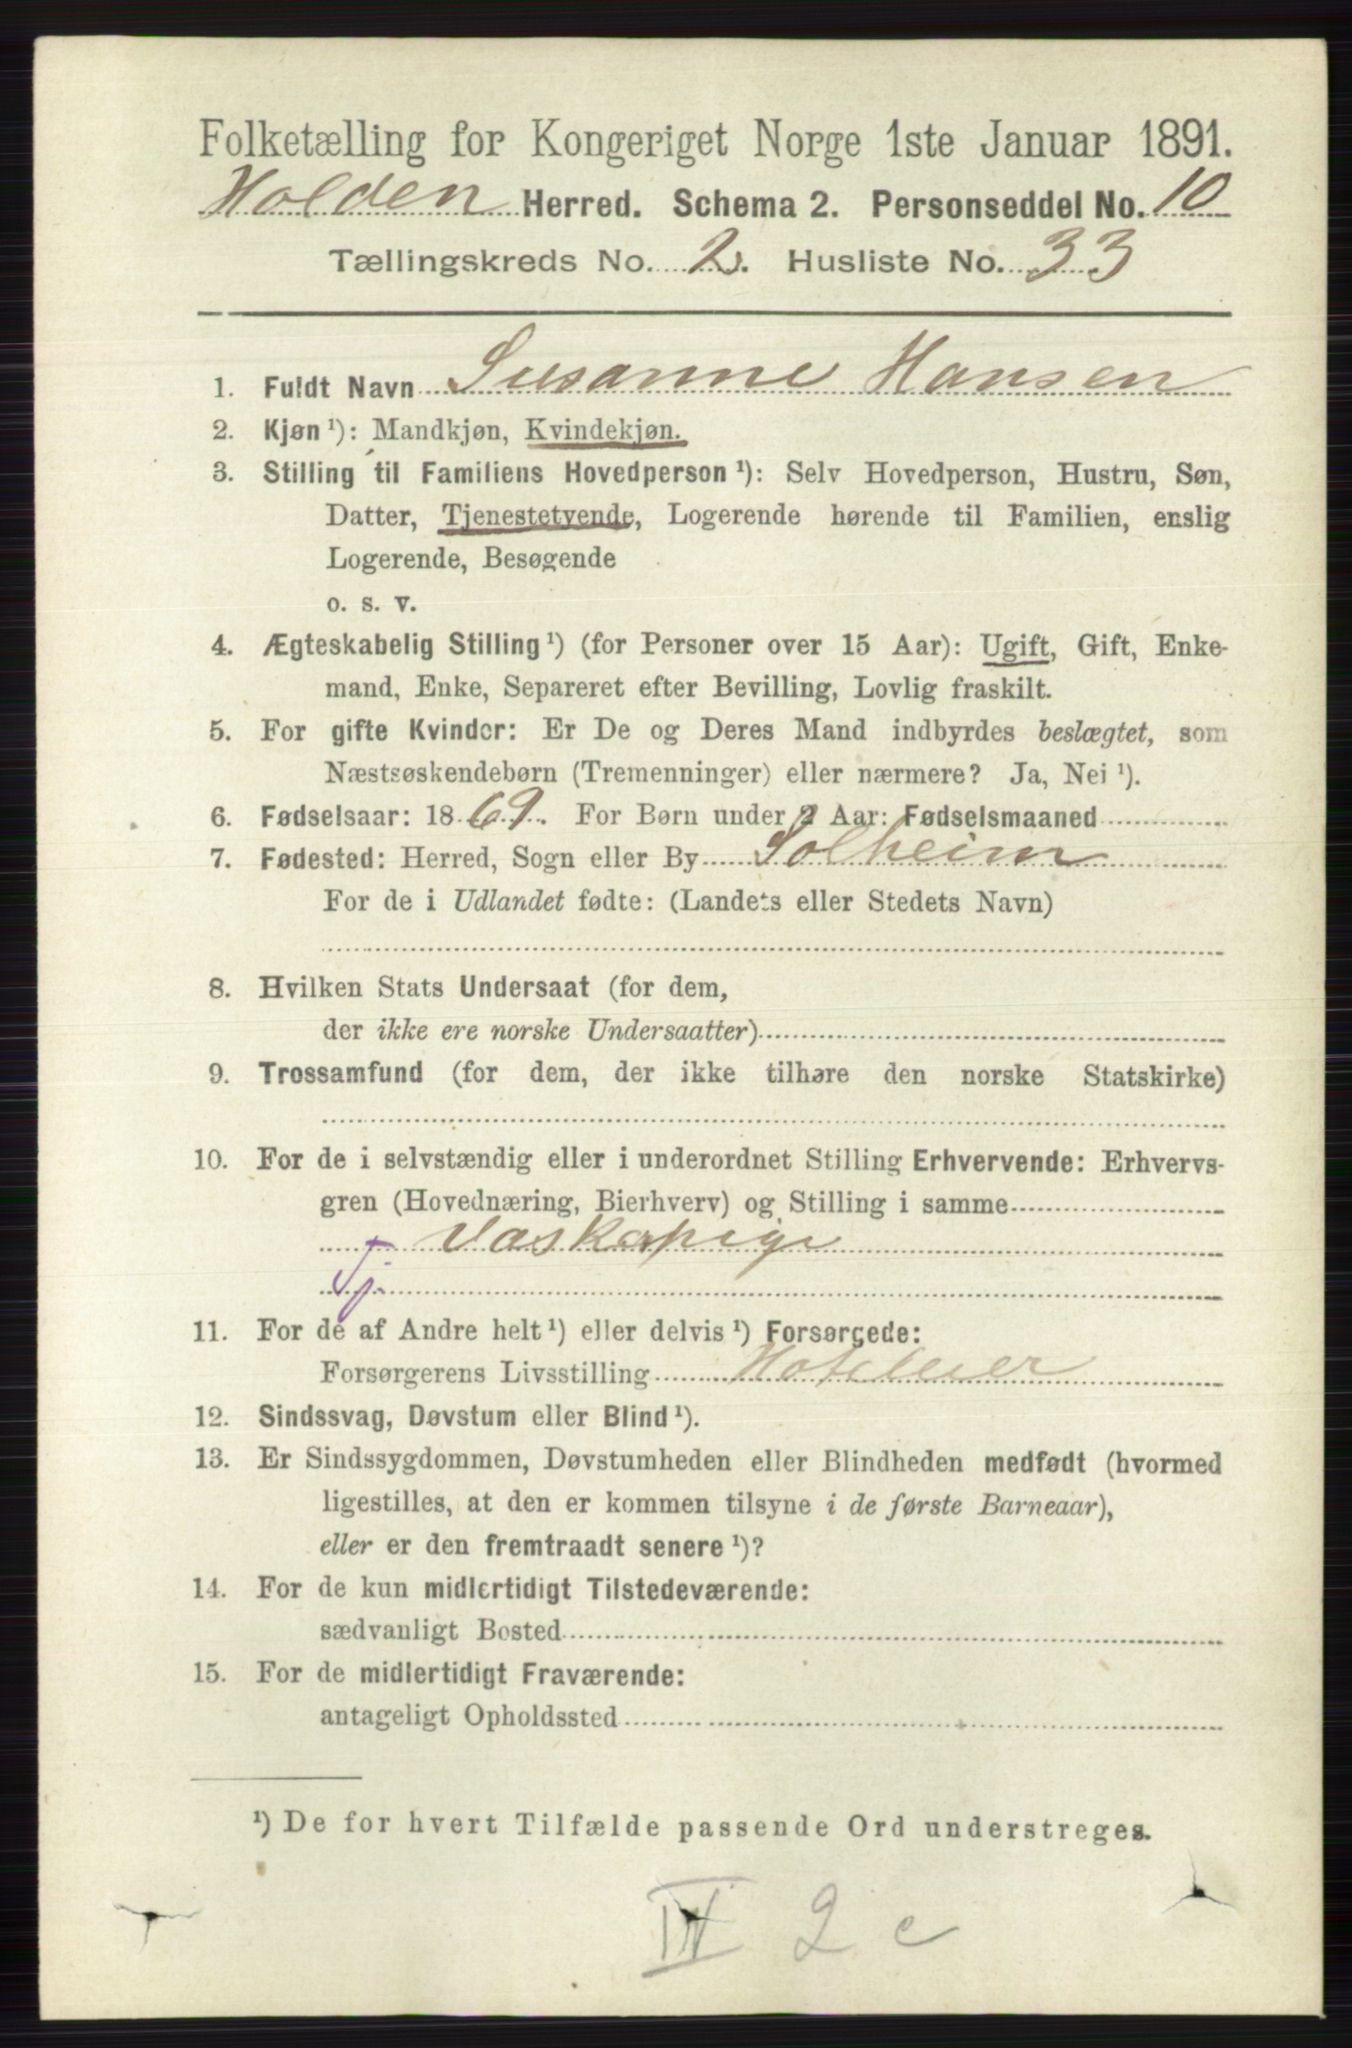 Folketælling for Kongeriget Norge 1ste Januar 1891.
Holden Herred. Schema 2. Personseddel No. 10
Tællingskreds No. 2. Husliste No. 33
1. Fuldt Navn Susanne Hansen
2. Kjøn ¹): Mandkjøn, Kvindekjøn.
3. Stilling til Familiens Hovedperson ¹): Selv Hovedperson, Hustru, Søn,
Datter, Tjenestetyende, Logerende hørende til Familien, enslig
Logerende, Besøgende
o. s. v.
4. Ægteskabelig Stilling ¹) (for Personer over 15 Aar): Ugift, Gift, Enke-
mand, Enke, Separeret efter Bevilling, Lovlig fraskilt.
5. For gifte Kvinder: Er De og Deres Mand indbyrdes beslægtet, som
Næstsøskendebørn (Tremenninger) eller nærmere? Ja, Nei ¹).
6. Fødselsaar: 1869. For Børn under 2 Aar: Fødselsmaaned
7. Fødested: Herred, Sogn eller By Solheim
For de i Udlandet fødte: (Landets eller Stedets Navn)
8. Hvilken Stats Undersaat (for dem,
der ikke ere norske Undersaatter)
9. Trossamfund (for dem, der ikke tilhøre den norske Statskirke)
10. For de i selvstændig eller i underordnet Stilling Erhvervende: Erhvervs-
gren (Hovednæring, Bierhverv) og Stilling i samme
Vaskepige
Tj.
11. For de af Andre helt ¹) eller delvis ¹) Forsørgede:
Forsørgerens Livsstilling Hoteleier
12. Sindssvag, Døvstum eller Blind ¹).
13. Er Sindssygdommen, Døvstumheden eller Blindheden medfødt (hvormed
ligestilles, at den er kommen tilsyne i de første Barneaar),
eller er den fremtraadt senere ¹)?
14. For de kun midlertidigt Tilstedeværende:
sædvanligt Bosted
15. For de midlertidigt Fraværende:
antageligt Opholdssted
¹) De for hvert Tilfælde passende Ord understreges.
IV 2 c